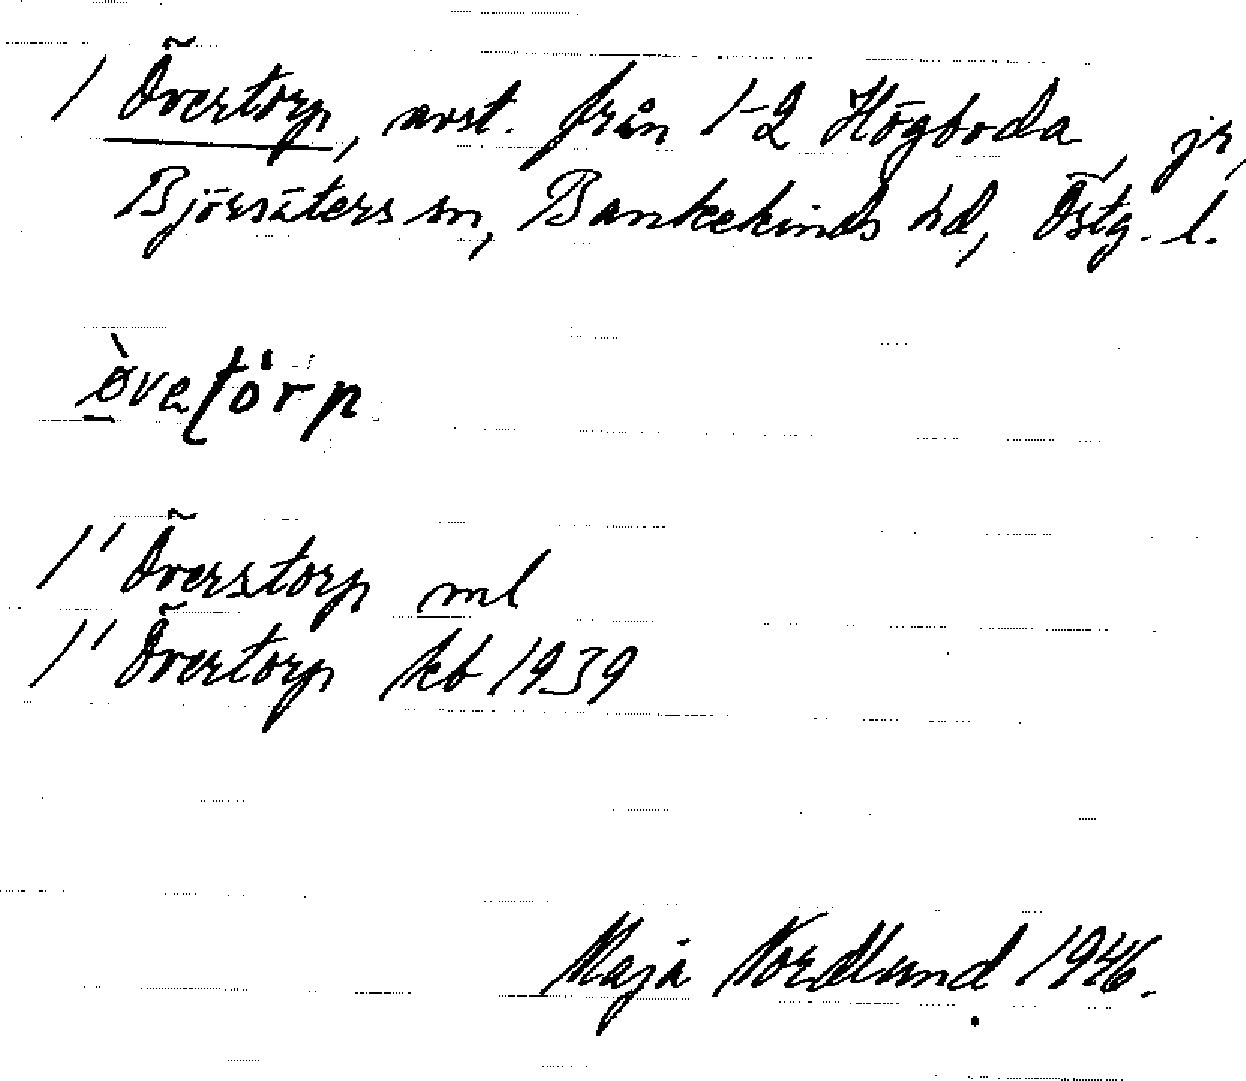 1 Övertorp, avst. från 1-2 Högboda, jr,
Björsäters sn, Bankekinds hd, Östg. l.
1' Överstorp ml
1' Övertorp kb 1939
Maja Nordlund 1946.